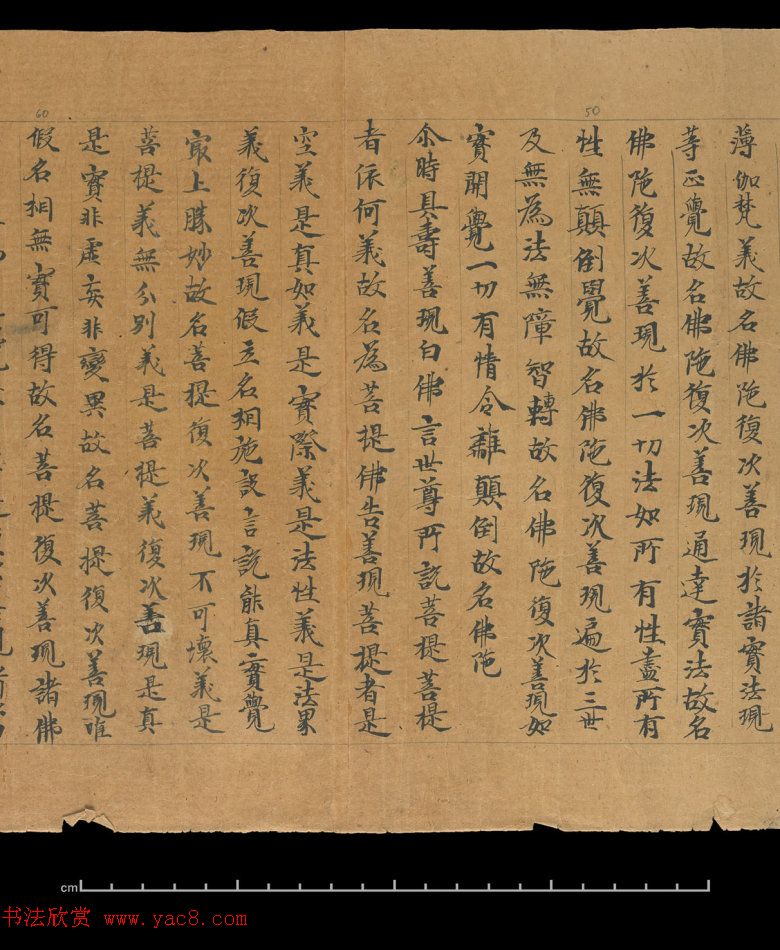 薄伽梵義故名佛陁復次善現於諸實法現
等正覺故名佛陁復次善現通達實法故名
佛陁復次善現於一切法如所有性盡所有
性無顛倒覺故名佛陁復次善現遍於三世
及無為法無障智轉故名佛陁復次善現如
實開覺一切有情令離顛倒故名佛陁
尒時具壽善現白佛言世尊所說菩提菩提
者依何義故名為菩提佛告善現菩提者是
空義是真如義是實際義是法性義是法界
義復次善現假立名相施設言說能真實覺
冣上勝妙故名菩提復次善現不可壞義是
菩提義無分別義是菩提義復次善現是真
是實非虛妄非變異故名菩提復次善現唯
假名相無實可得故名菩提復次善現諸佛
50
60
cm
书法欣赏 www.yac8.com